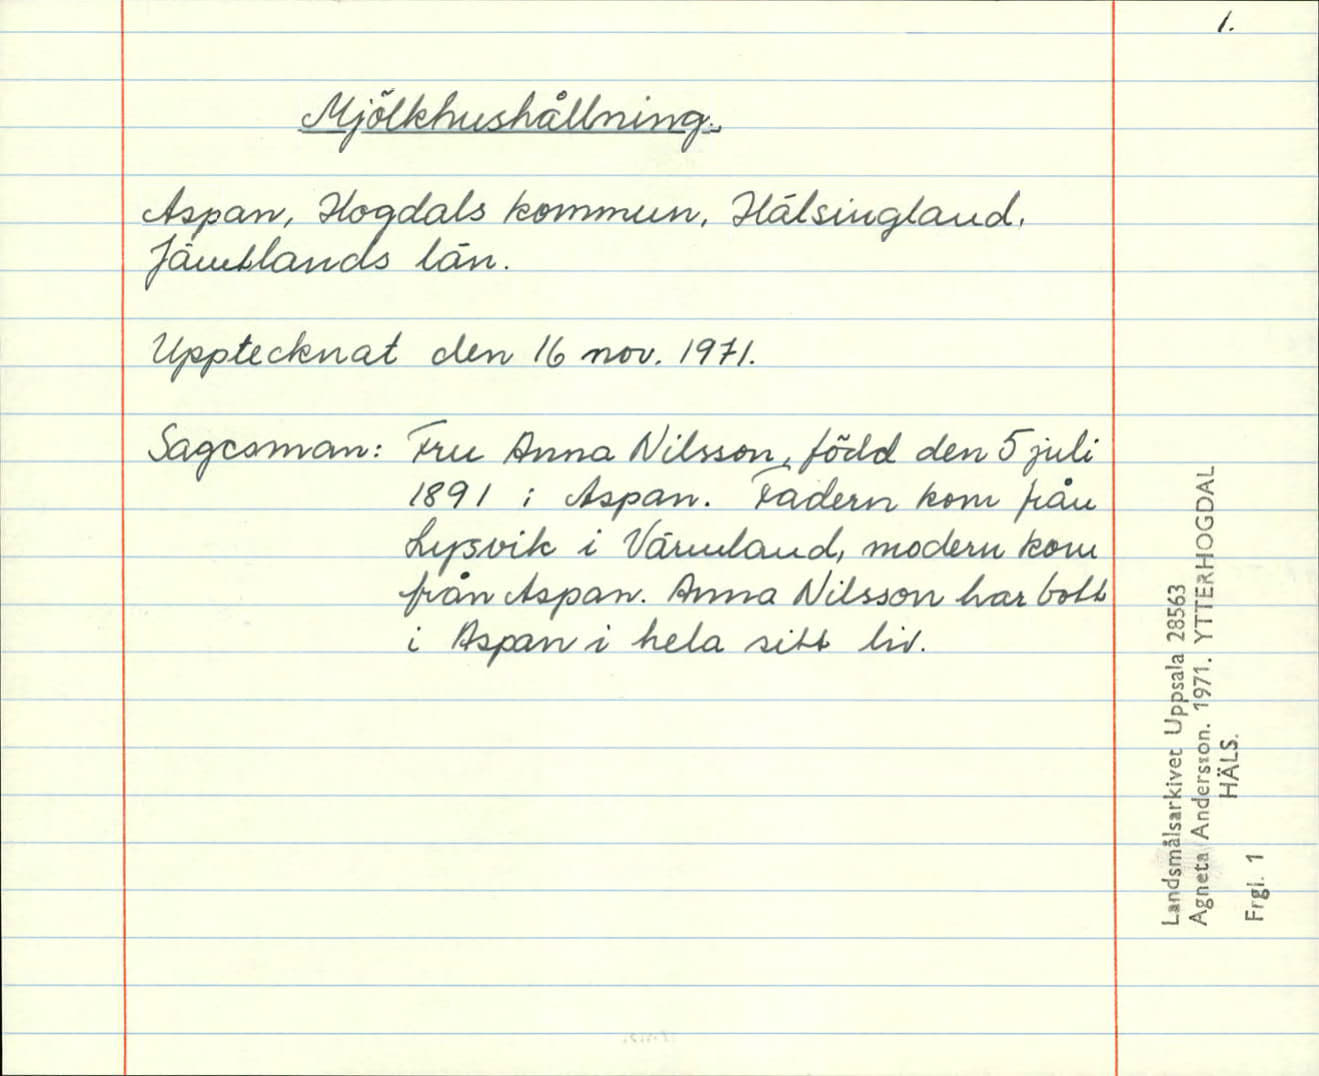 1.
Mjölkhushållning.
Aspan, Hogdals kommun, Hälsingland.
Jämtlands län.
Upptecknat den 16 nov. 1971.
Sagesman: Fru Anna Nilsson, född den 5 juli
1891 i Aspan. Fadern kom från
Lysvik i Värmland, modern kom
från Aspan. Anna Nilsson har bott
i Aspan i hela sitt liv.
Landsmålsarkivet Uppsala 28563
Agneta Andersson. 1971. YTTERHOGDAL
HÄLS.
Frgl. 1